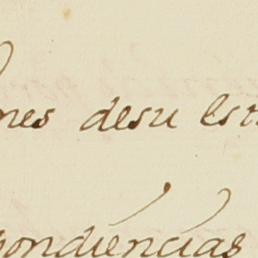 nes desu Est
pondiencias